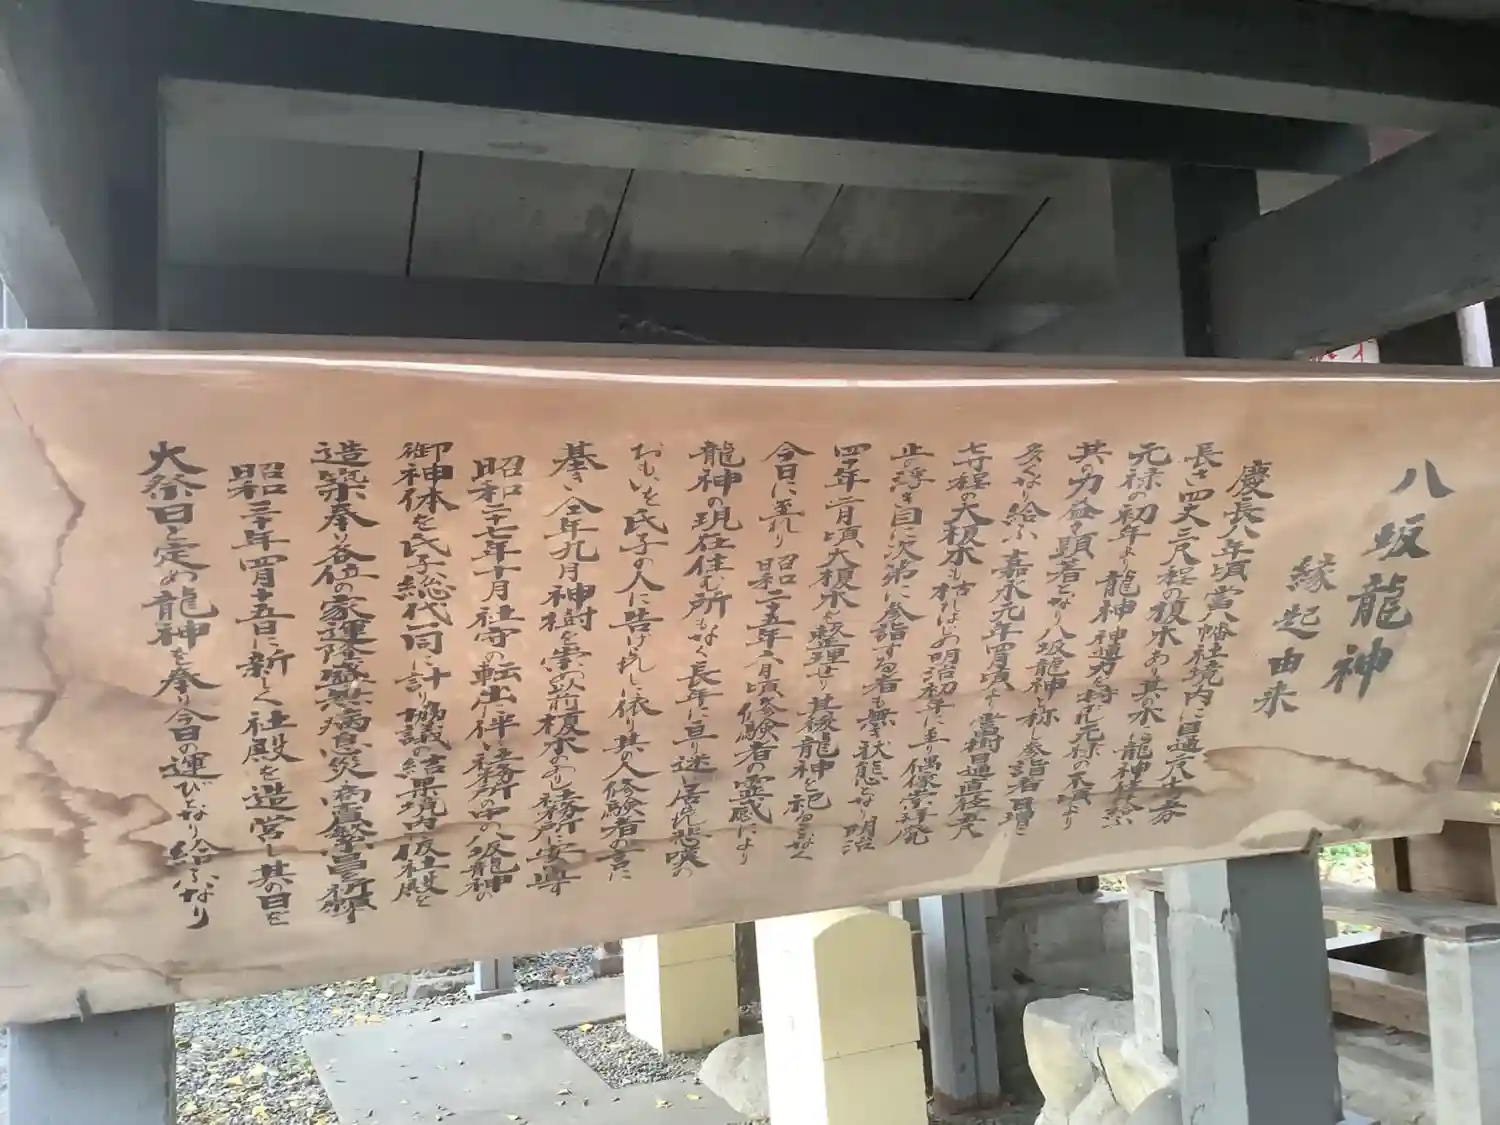 八坂龍神
縁起由来
慶長八年頃當八幡社境内に目通六七寸
長さ四丈三尺程の榎木あり其の木に龍神
元禄の初年より龍神神通力を
其の力益々顕著となり八坂龍神と称し参詣者日増に
多くなり給ふ嘉永元年四月頃より霊樹目通直径五尺
七寸程の大榎木も枯れはじめ明治初年に至り偶像崇拝発
止の浮き目に次第に参詣する者も無き状態となり明治
四十年二月頃大榎木を整理せり其後龍神を祀る
今日に至れり昭和二十五年六月頃修験者の霊感により
龍神の現在住む所もなく長年に亘り迷い居られ悲嘆の
おもいを氏子の人に告げられし依り其の人修験者の言に
基き全年九月神樹を崇め以前榎木のあり社務所に安置
昭和二十七年十月社守の転出に伴い社務所の中の八坂龍神の
御神体を氏子総代一同に計り協議の結果境内仮社殿を
造築奉り各位の家運隆盛無病息災商売繁昌を祈願
昭和三十年四月十五日に新しく社殿を造営し其の日を
大祭日と定め龍神を奉り今日の運びとなり給ふなり